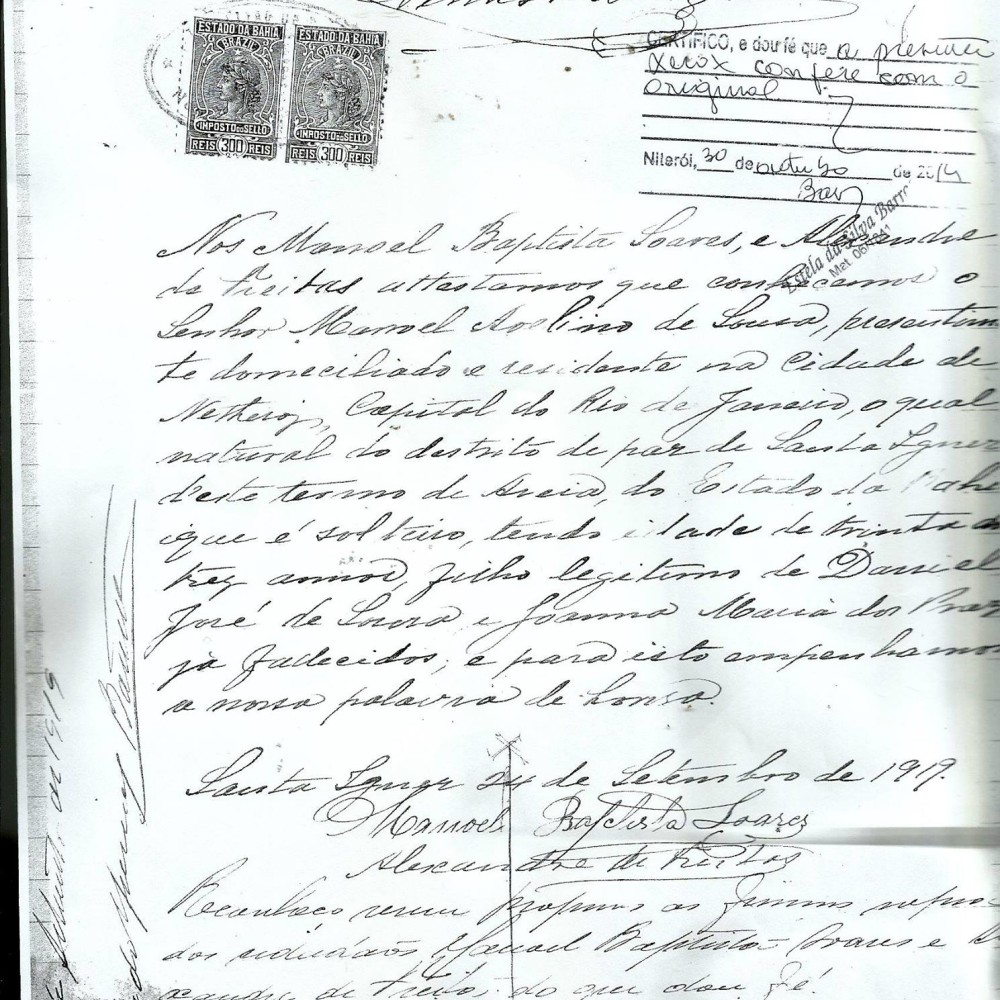 ESTADO DA BAHIA ESTADO DA BAHIA
BRAZIL BRAZIL
IMPOSTO DO SELLO IMPOSTO DO SELLO
REIS 300 REIS REIS 300 REIS
CERTIFICO, e dou fé que a presente
xerox confere com o
original
Niterói, 30 de outubro de 2014
Estela da Silva Barro
Mat
Nos Manoel Baptista Soares, e Alexandre
de Freitas attestamos que conhecemos o
Senhor Manoel Avelino de Sousa, presentem
te domeciliado e residente na Cidade de
Netheroy, Capital do Rio de Janeiro, o qual
natural do destrito de paz de Santa Ignez
d'este termo de Areia, do Estado da Bahi
que é solteiro, tendo idade de trinta e
trez annos, filho legitimo de Daniel
José de Sousa e Joanna Maria dos Praz
já fallecidos, e para isto empenhamos
a nossa palavra de honra.
Santa Ignez 24 de Setembro de 1919.
Manoel Baptista Soares
Alexandre de Freitas
Reconheço serem proprias as firmas
dos Manoel Baptista Soares e
de Freitas, do que dou fé.
de 1919